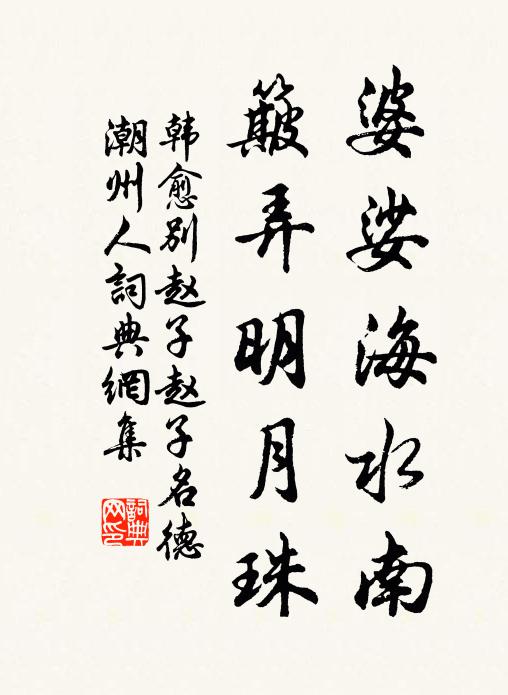 婆娑海水南
簸弄明月珠
韩愈别赵子赵子名德
潮州人詞典網集
詞典网印